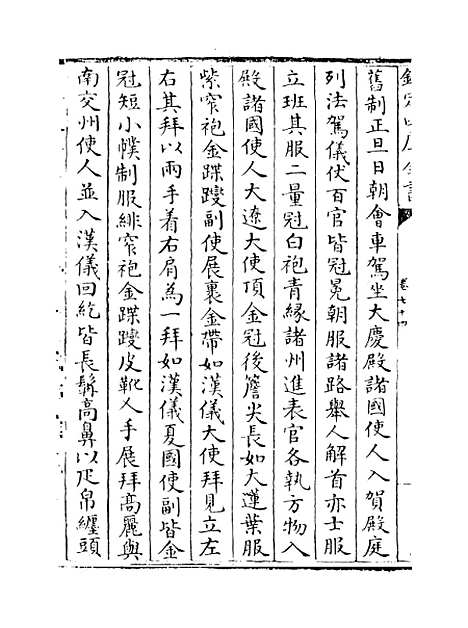 欽定四庫全書
卷七十四
舊制正旦日朝會車駕坐大慶殿諸國使人入賀殿庭
列法駕儀仗百官皆冠冕朝服諸路舉人解首亦士服
立班其服二量冠白袍青緣諸州進表官各執方物入
殿諸國使人大遼大使頂金冠後簷尖長如大蓮葉服
紫窄袍金蹀躞副使展裹金帶如漢儀大使拜見立左
右其拜以兩手着右肩為一拜如漢儀夏國使副皆金
冠短小幞制服緋窄袍金蹀躞皮靴人手展拜髙麗與
南交州使人並入漢儀回紇皆長髯高鼻以疋帛纏頭